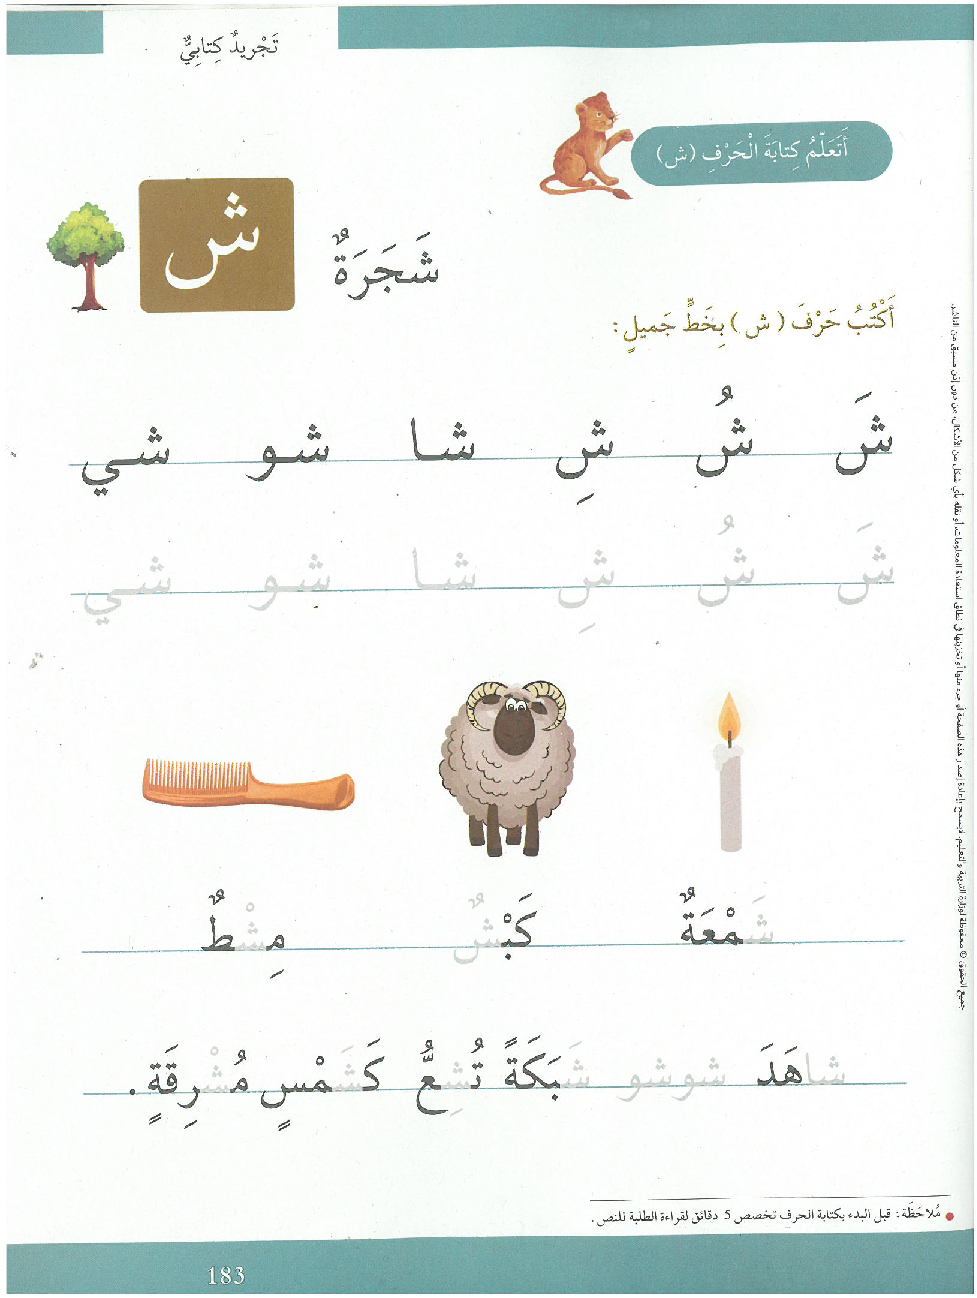 تَجْريدٌ كِتابِيٌّ
أَتَعَلَّمُ كِتابَةَ الْحَرْفِ (ش)
ش
شَجَرَةٌ
أَكْتُبُ حَرْفَ ( ش ) بِخَطٍّ جَميلٍ :
شَ شُ شِ شا شو شي
شَ شُ شِ شا شو شي
شَمْعَةٌ كَبْشٌ مِشْطٌ
شاهَدَ شوشو شَبَكَةً تُشِعُّ كَشَمْسٍ مُشْرِقَةٍ .
مُلاحَظَة : قبل البدء بكتابة الحرف تخصص 5 دقائق لقراءة الطلبة للنص .
183
جميع الحقوق © محفوظة لوزارة التربية والتعليم. لايسمح بإعادة إصدار هذه الصفحة أو جزء منها أو تخزينها في نطاق استعادة المعلومات، أو نقله بأي شكل من الأشكال، من دون إذن مسبق من الناشر.